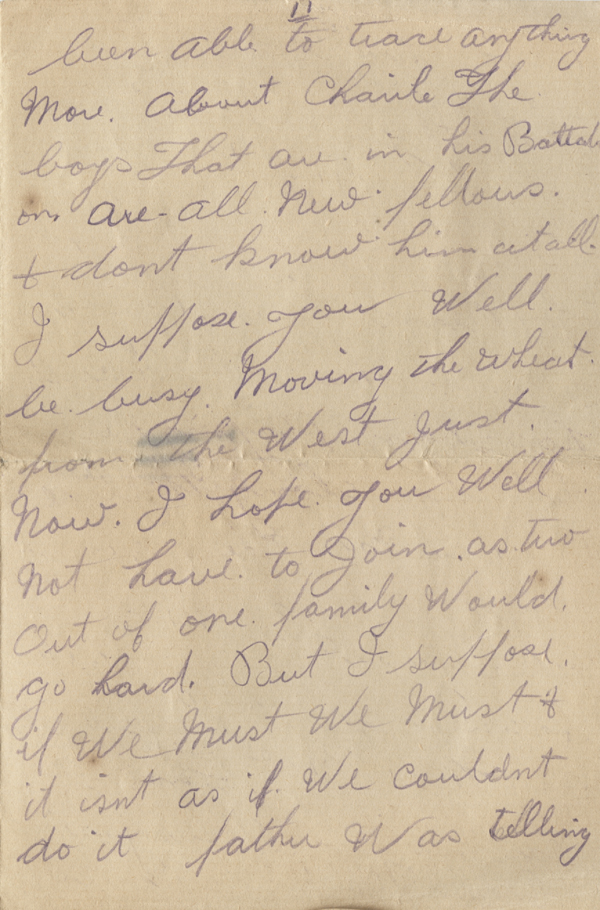 11
been able to trace anything
More. About Charlie The
boys That are in his Battali
on are - all New fellows.
& dont know him at all.
I suppose. you Well.
be busy. Moving the wheat.
from the West Just.
Now. I hope. you Well
Not have. to Join. as two
Out of one. family Would.
go hard. But I suppose.
if We Must We Must &
it isnt as if. We couldnt
do it father Was telling